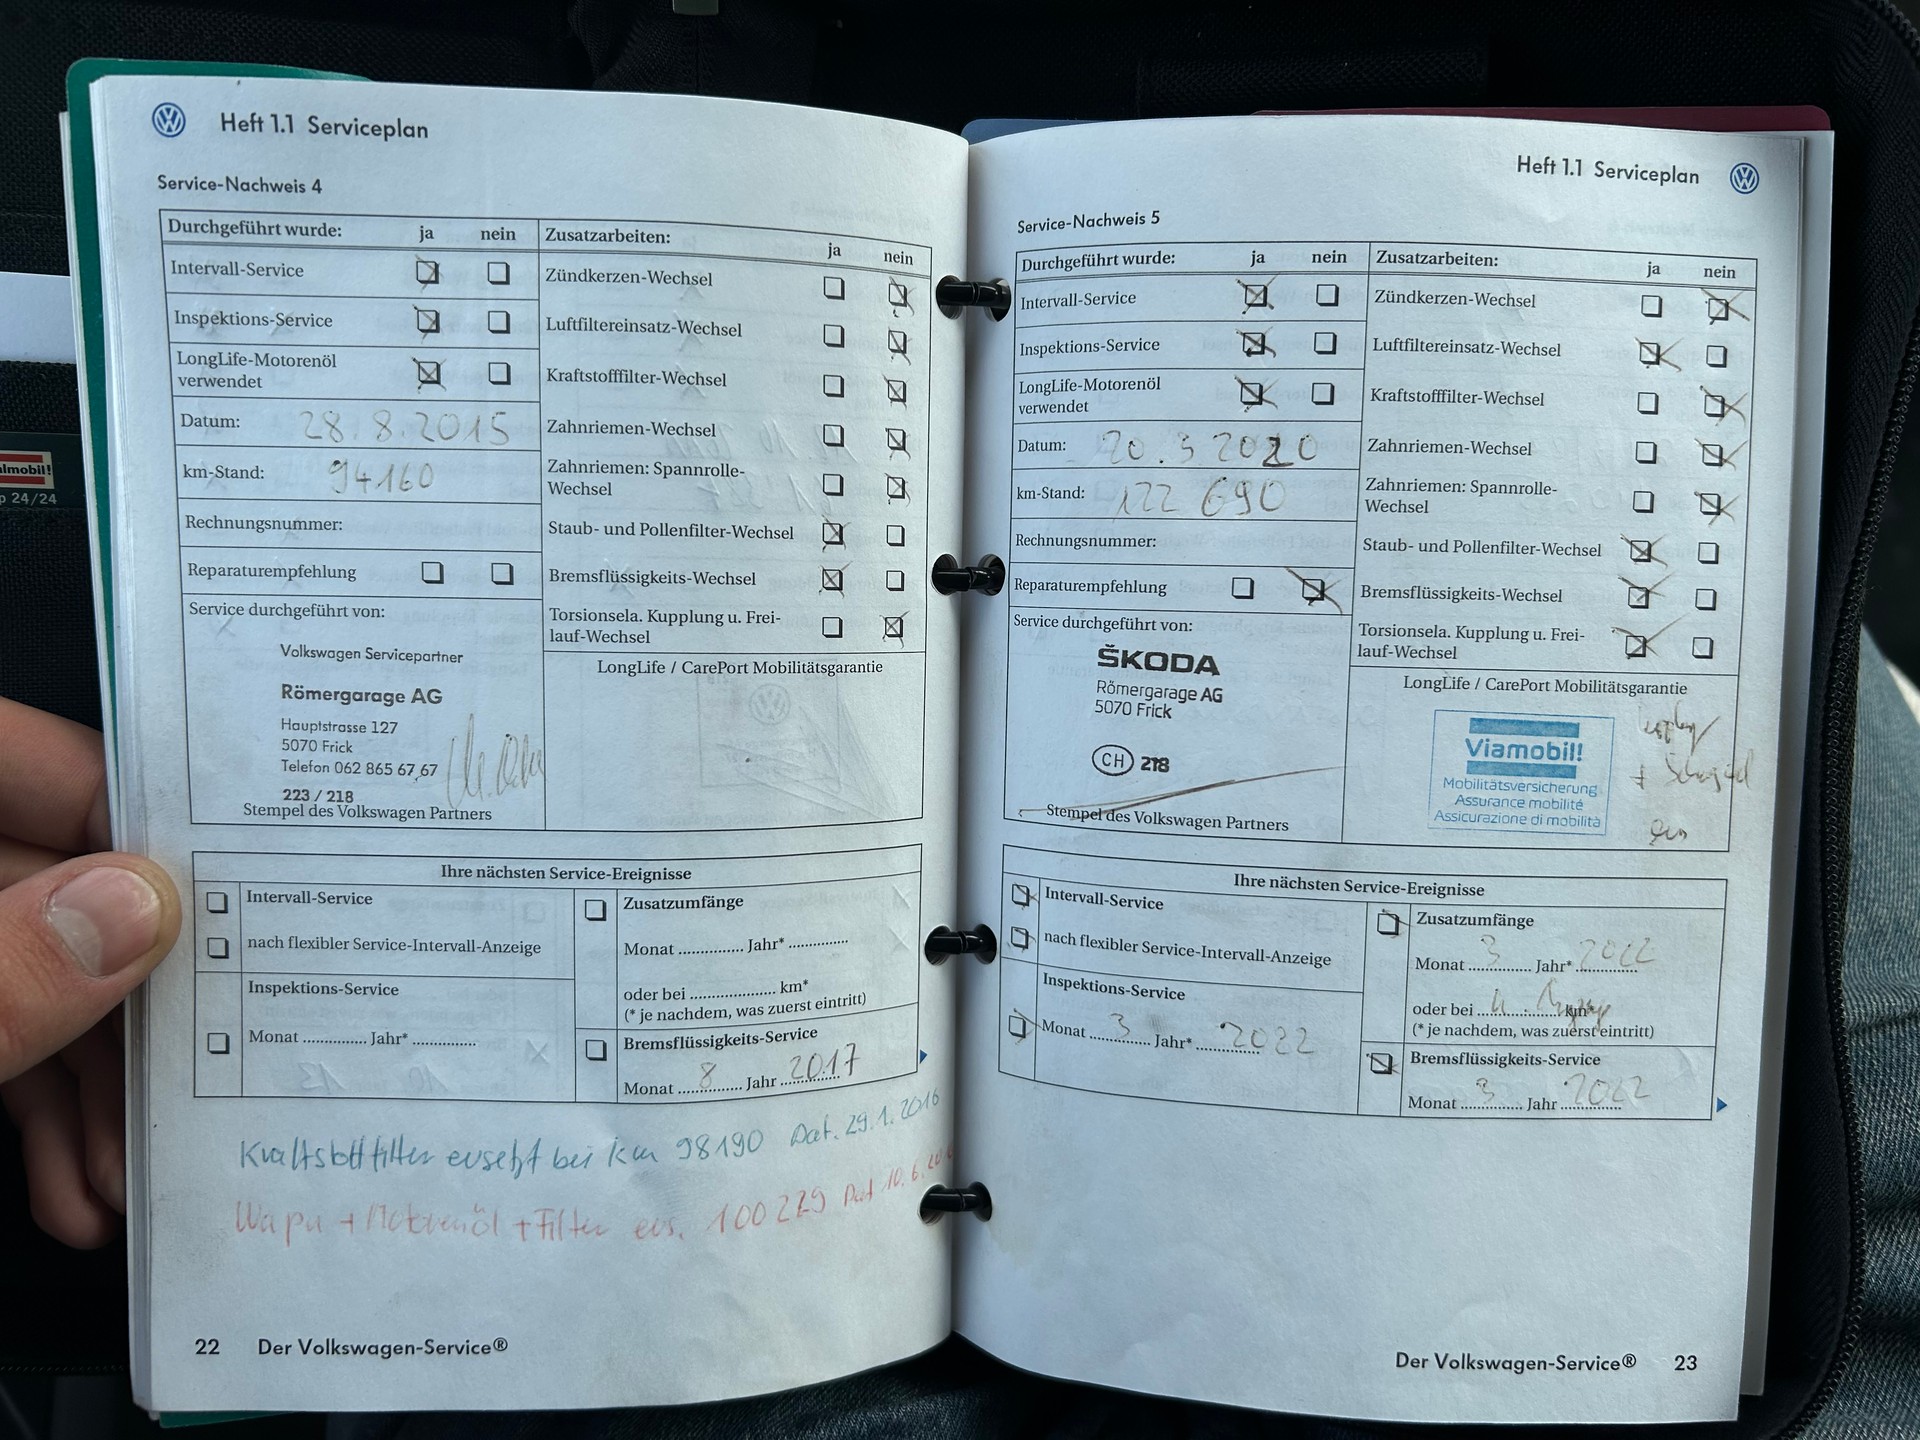 Heft 1.1 Serviceplan
Service-Nachweis 4
Durchgeführt wurde: ja nein
Intervall-Service
Inspektions-Service
LongLife-Motorenöl
verwendet
Datum: 28.8.2015
km-Stand: 94160
Rechnungsnummer:
Reparaturempfehlung
Service durchgeführt von:
Volkswagen Servicepartner
Römergarage AG
Hauptstrasse 127
5070 Frick
Telefon 062 865 67 67
223 / 218
Stempel des Volkswagen Partners
Zusatzarbeiten: ja nein
Zündkerzen-Wechsel
Luftfiltereinsatz-Wechsel
Kraftstofffilter-Wechsel
Zahnriemen-Wechsel
Zahnriemen: Spannrolle-
Wechsel
Staub- und Pollenfilter-Wechsel
Bremsflüssigkeits-Wechsel
Torsionsela. Kupplung u. Frei-
lauf-Wechsel
LongLife / CarePort Mobilitätsgarantie
Ihre nächsten Service-Ereignisse
Intervall-Service
nach flexibler Service-Intervall-Anzeige
Inspektions-Service
Monat .............. Jahr* ..............
Zusatzumfänge
Monat .............. Jahr* ..............
oder bei .................... km*
(* je nachdem, was zuerst eintritt)
Bremsflüssigkeits-Service
Monat 8 Jahr 2017
Kraftstofffilter ersetzt bei km 98190 Dat. 29.1.2016
Wapu + Motorenöl + Filter ers. 100229 Dat 10.6.
22 Der Volkswagen-Service®
Heft 1.1 Serviceplan
Service-Nachweis 5
Durchgeführt wurde: ja nein
Intervall-Service
Inspektions-Service
LongLife-Motorenöl
verwendet
Datum: 20.3 2020
km-Stand: 122 690
Rechnungsnummer:
Reparaturempfehlung
Service durchgeführt von:
ŠKODA
Römergarage AG
5070 Frick
CH 218
Stempel des Volkswagen Partners
Zusatzarbeiten: ja nein
Zündkerzen-Wechsel
Luftfiltereinsatz-Wechsel
Kraftstofffilter-Wechsel
Zahnriemen-Wechsel
Zahnriemen: Spannrolle-
Wechsel
Staub- und Pollenfilter-Wechsel
Bremsflüssigkeits-Wechsel
Torsionsela. Kupplung u. Frei-
lauf-Wechsel
LongLife / CarePort Mobilitätsgarantie
Viamobil!
Mobilitätsversicherung
Assurance mobilité
Assicurazione di mobilità
Ihre nächsten Service-Ereignisse
Intervall-Service
nach flexibler Service-Intervall-Anzeige
Inspektions-Service
Monat 3 Jahr* 2022
Zusatzumfänge
Monat 3 Jahr* 2022
oder bei km*
(* je nachdem, was zuerst eintritt)
Bremsflüssigkeits-Service
Monat 3 Jahr 2022
Der Volkswagen-Service® 23
almobil!
p 24/24